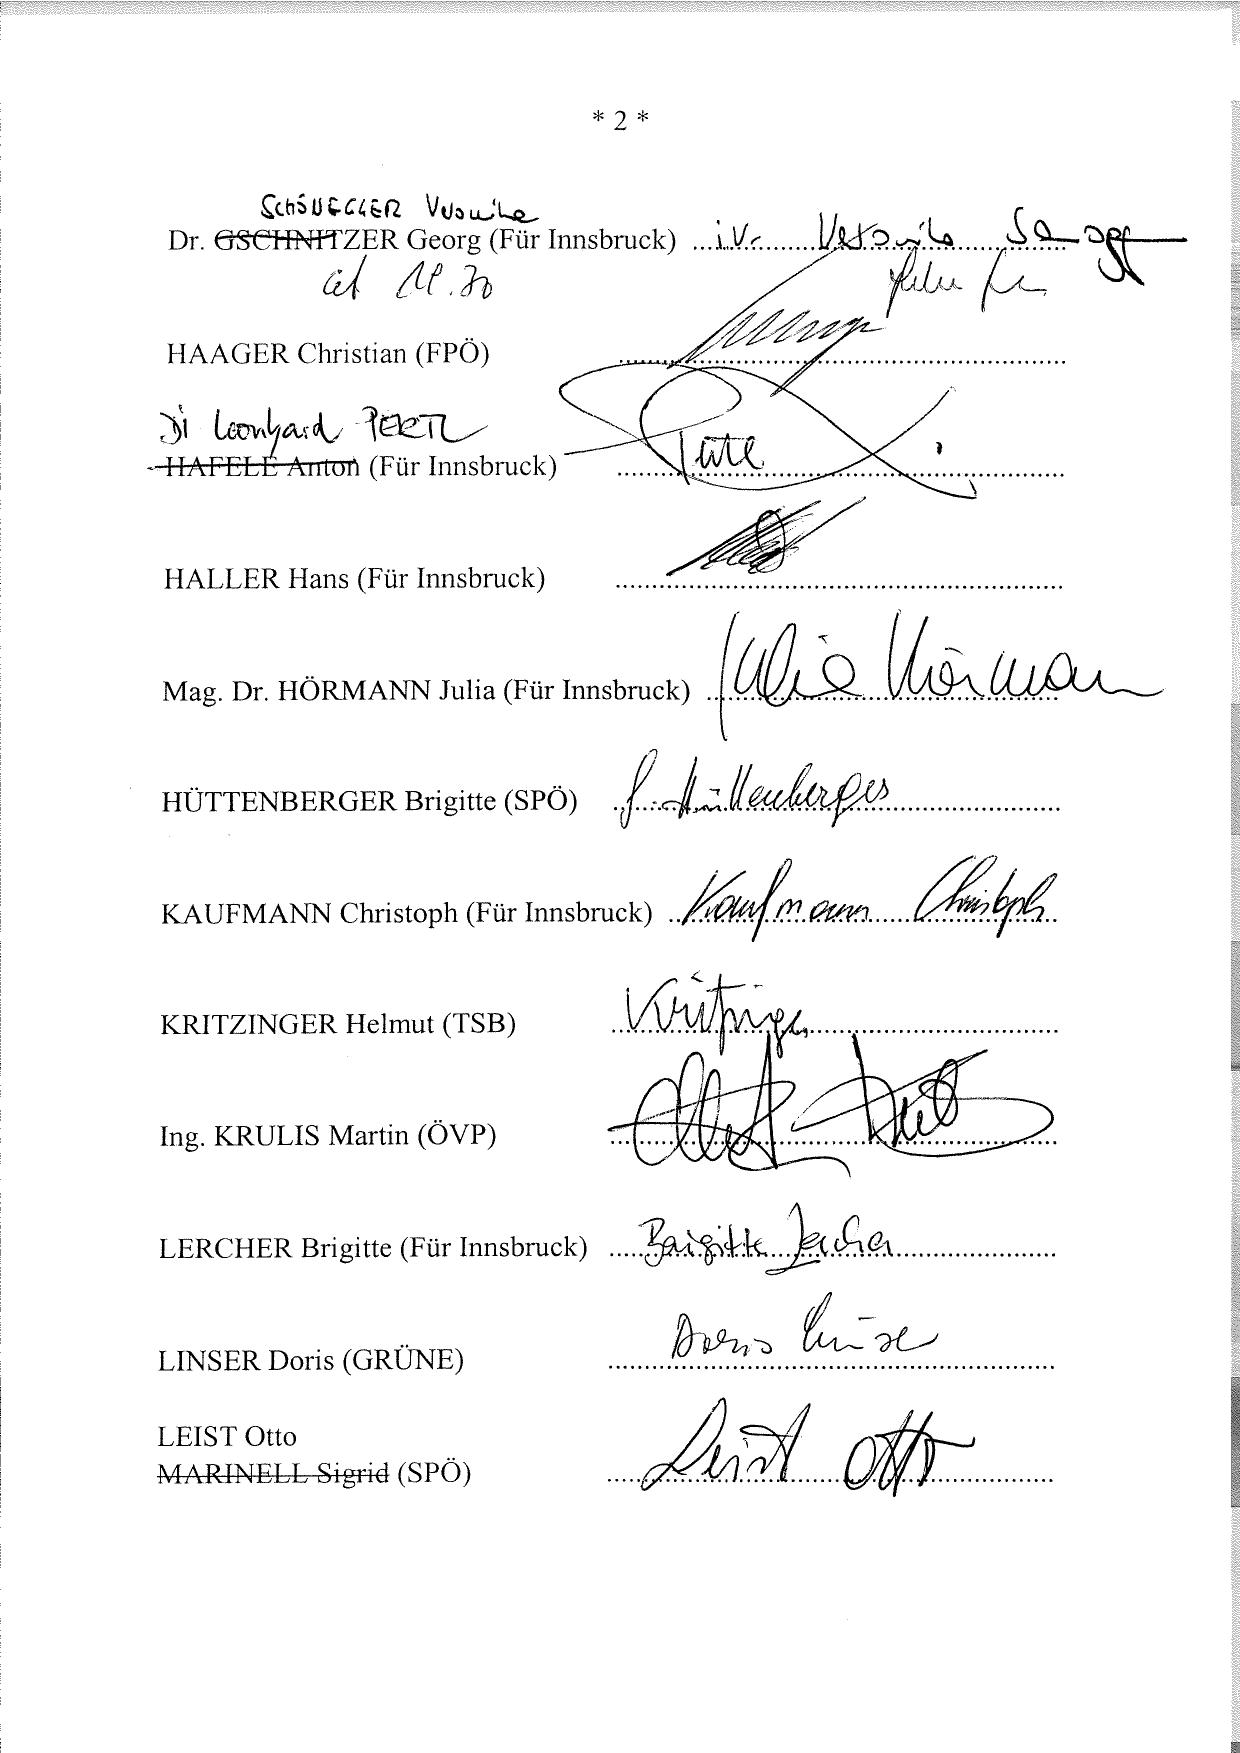 * 2 *
SCHÖNEGGER Veronika
Dr. GSCHNITZER Georg (Für Innsbruck) ...i.V. Veronika
HAAGER Christian (FPÖ) ..........
DI Leonhard PERTL
HAFELE Anton (Für Innsbruck) ..........
HALLER Hans (Für Innsbruck) ..........
Mag. Dr. HÖRMANN Julia (Für Innsbruck) ..Julia Hörmann
HÜTTENBERGER Brigitte (SPÖ) ..Hüttenberger..........
KAUFMANN Christoph (Für Innsbruck) ..Kaufmann.....Christoph
KRITZINGER Helmut (TSB) ..Kritzinger..........
Ing. KRULIS Martin (ÖVP) ..........
LERCHER Brigitte (Für Innsbruck) .....Brigitte Lercher..........
LINSER Doris (GRÜNE) Doris Linser
LEIST Otto
MARINELL Sigrid (SPÖ) .....Leist Otto..........